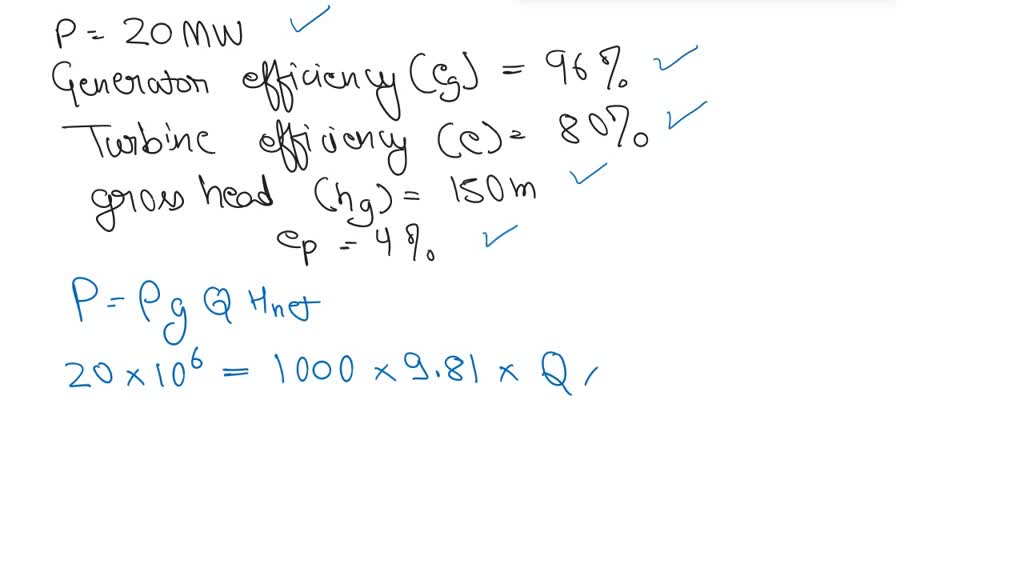 P = 20 MW
Generator efficiency (eg) = 96%
Turbine efficiency (e) = 80%
gross head (hg) = 150 m
ep = 4%
P = ρg Q Hnet
20 × 10⁶ = 1000 × 9.81 × Q